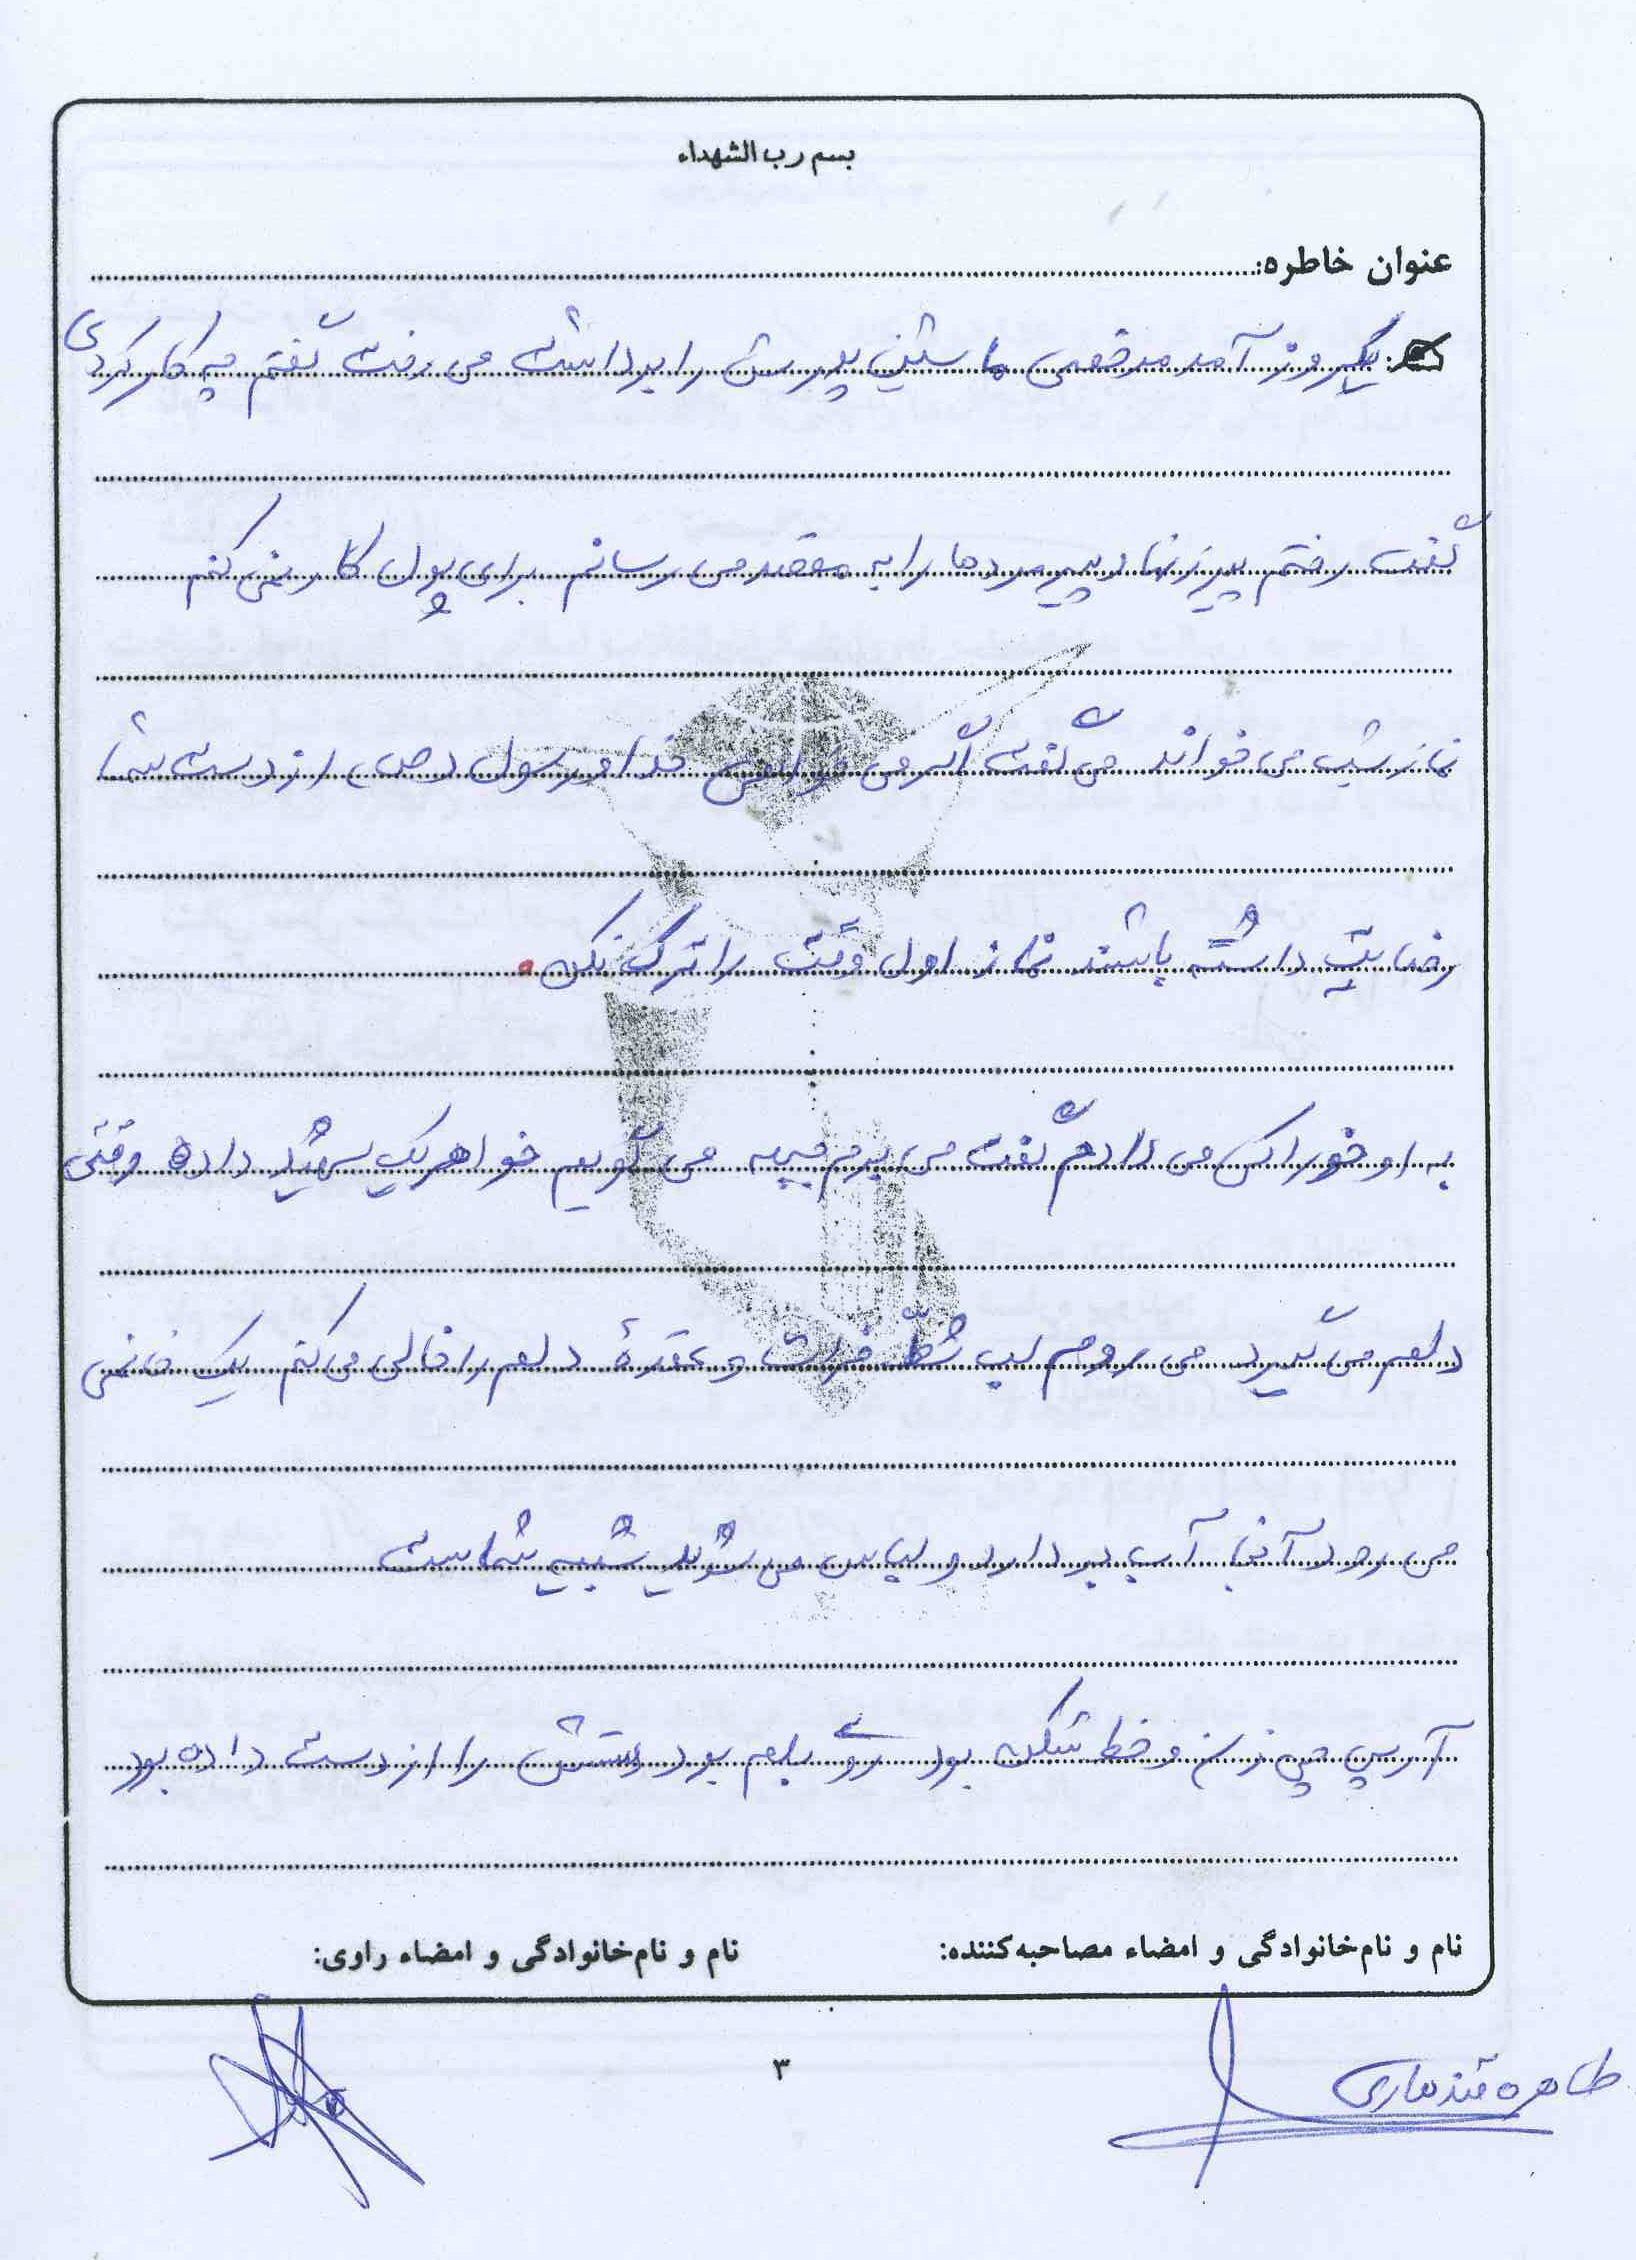 بسم رب الشهداء
عنوان خاطره:
یک روز آمد مرخصی ماشین پدرش را برداشت می رفت گفتم چه کار کردی
گفت رفتم پیرزنها و پیرمردها را به مقصد می رسانم برای پول کار نمی کنم
نماز شب می خواند می گفت اگر می خواهی خدا و رسول (ص) از دست شما
رضایت داشته باشند نماز اول وقت را ترک نکن
به او خوراکی می دادم گفت می برم جبهه می گویم خواهر یک شهید داده وقتی
دلم می گیرد می روم لب شط فرات و عقدۀ دلم را خالی می کنم یک خانمی
می رود آنجا آب بردارد و لباس می شوید شبیه شماست
آرپی جی زن و خط شکن بود روی بلم بود دستش را از دست داده بود
نام و نام خانوادگی و امضاء مصاحبه کننده:
نام و نام خانوادگی و امضاء راوی:
طاهره قندهاری
۳